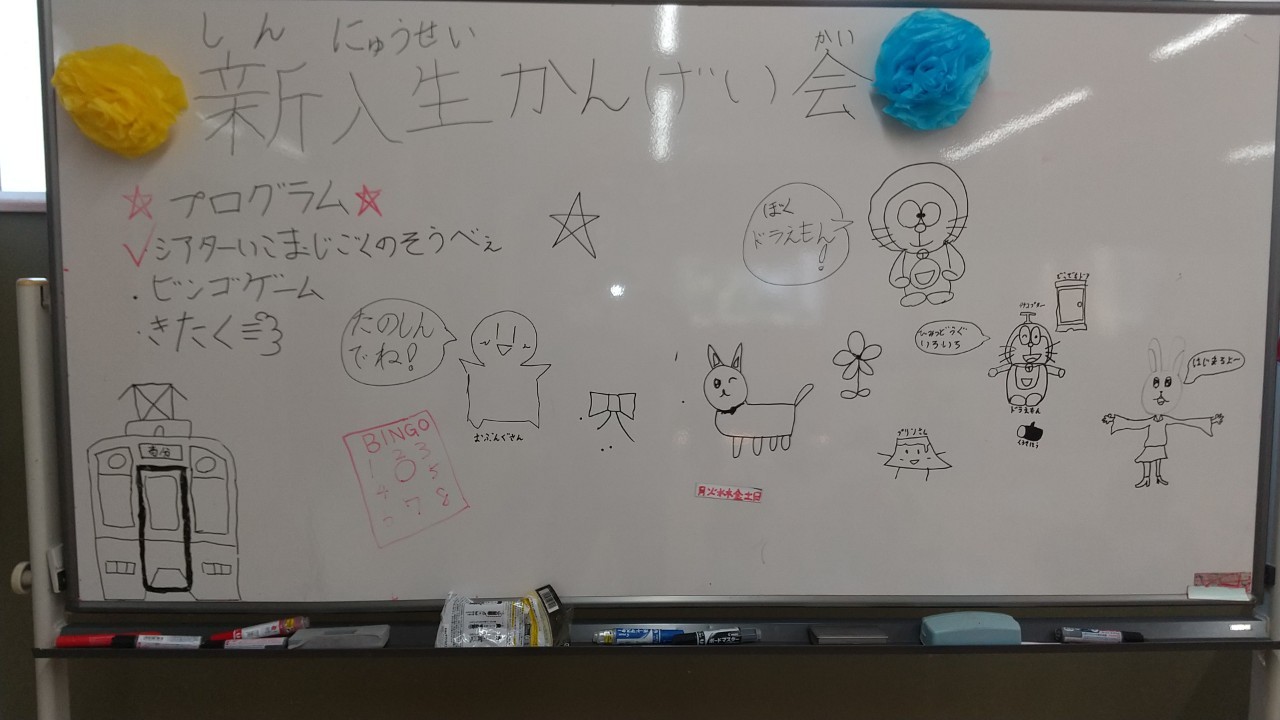 しん にゅうせい かい
新入生かんげい会
☆プログラム☆
✓シアターいこまじごくのそうべえ
・ビンゴゲーム
・きたく
ぼく
ドラえもん!
たのしん
でね!
おぶんぐせん
BINGO
1 2 3
4 5
7 8
どこでもドア
タケコプター
ひみつどうぐ
いろいろ
ドラえもん
プリンさん
はじまるよ〜
月火水木金土日